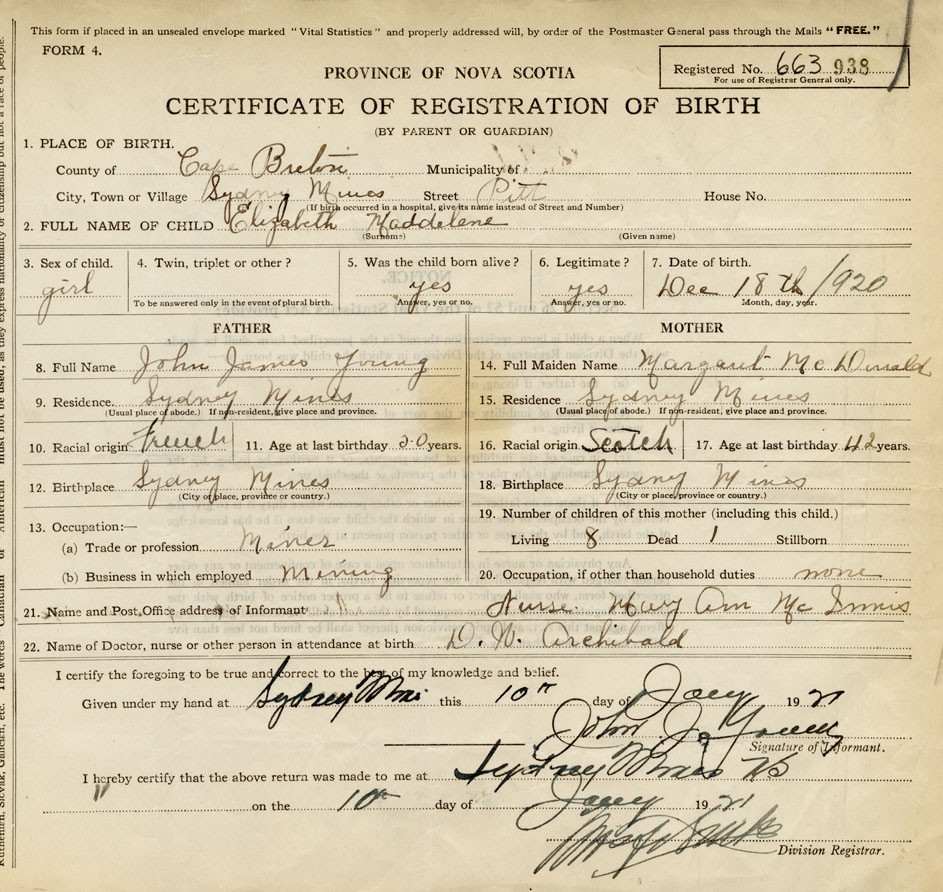 This form if placed in an unsealed envelope marked "Vital Statistics" and properly addressed will, by order of the Postmaster General pass through the Mails "FREE."
FORM 4.
Registered No. 663 938
For use of Registrar General only.
PROVINCE OF NOVA SCOTIA
CERTIFICATE OF REGISTRATION OF BIRTH
(BY PARENT OR GUARDIAN)
1. PLACE OF BIRTH.
County of Cape Breton Municipality of
City, Town or Village Sydney Mines Street Pitt House No.
(If birth occurred in a hospital, give its name instead of Street and Number)
2. FULL NAME OF CHILD Elizabeth Maddelene
(Surname) (Given name)
3. Sex of child. 4. Twin, triplet or other? 5. Was the child born alive? 6. Legitimate? 7. Date of birth.
girl yes yes Dec 18th 1920
To be answered only in the event of plural birth. Answer, yes or no. Answer, yes or no. Month, day, year.
FATHER MOTHER
8. Full Name John James Young 14. Full Maiden Name Margaret McDonald
9. Residence. Sydney Mines 15. Residence Sydney Mines
(Usual place of abode.) If non-resident, give place and province. (Usual place of abode.) If non-resident, give place and province.
10. Racial origin French 11. Age at last birthday years. 16. Racial origin Scotch 17. Age at last birthday 42 years.
12. Birthplace Sydney Mines 18. Birthplace Sydney Mines
(City or place, province or country.) (City or place, province or country.)
13. Occupation:— 19. Number of children of this mother (including this child.)
(a) Trade or profession Miner Living 8 Dead 1 Stillborn
(b) Business in which employed Mining 20. Occupation, if other than household duties none
21. Name and Post Office address of Informant Nurse Mary Ann McInnis
22. Name of Doctor, nurse or other person in attendance at birth D. W. Archibald
I certify the foregoing to be true and correct to the best of my knowledge and belief.
Given under my hand at Sydney Mines this 10th day of Jany 1921
John J. Young
Signature of Informant.
I hereby certify that the above return was made to me at Sydney Mines NS
on the 10th day of Jany 1921
Division Registrar.